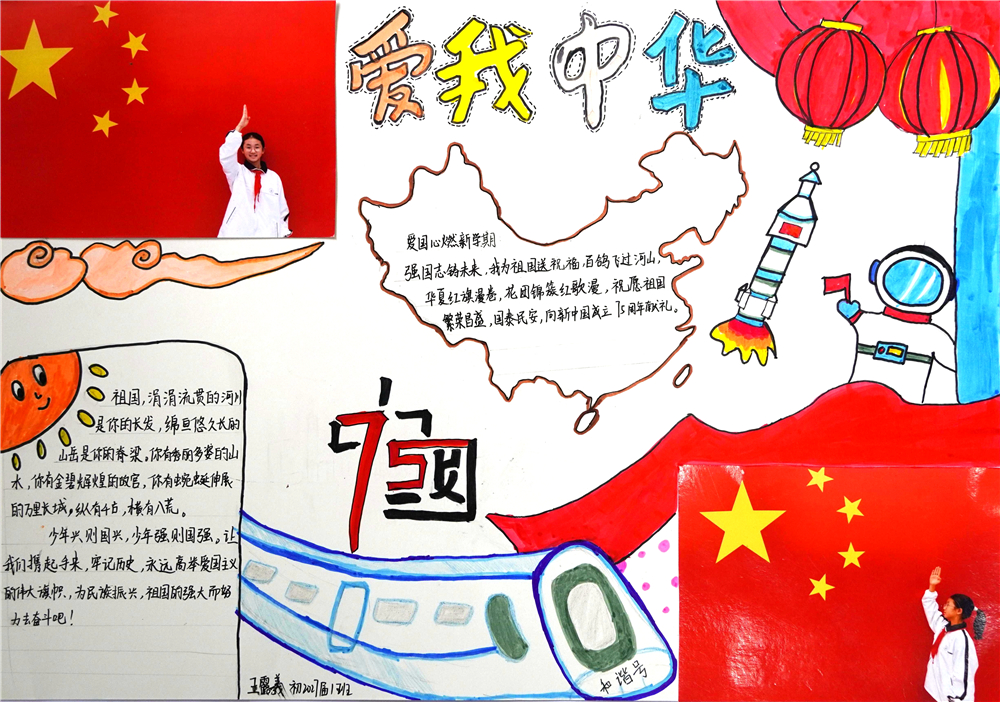 爱我中华
爱国心燃新学期
强国志铸未来，我为祖国送祝福，百鸽飞过河山，
华夏红旗漫卷，花团锦簇红歌漫，祝愿祖国
繁荣昌盛，国泰民安，向新中国成立75周年献礼。
祖国，涓涓流贯的河川
是你的长发，绵亘悠久长的
山岳是你的脊梁。你有秀丽多姿的山
水，你有金碧辉煌的故宫，你有蜿蜒延伸展
的万里长城。纵有千古，横有八荒。
少年兴则国兴，少年强则国强。让
我们携起手来，牢记历史，永远高举爱国主义
的伟大旗帜，为民族振兴，祖国的强大而努
力去奋斗吧！
75
和谐号
初2027届17班